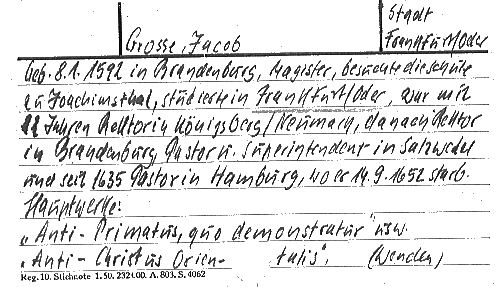 Stadt
Grosse, Jacob Frankfurt/Oder
Geb. 8.1.1592 in Brandenburg, Magister, besuchte die Schule
zu Joachimsthal, studierte in Frankfurt/Oder, war mit
22 Jahren Rektor in Königsberg/Neumark, danach Rektor
in Brandenburg, Pastor u. Superintendent in Salzwedel
und seit 1635 Pastor in Hamburg, wo er 14.9.1652 starb.
Hauptwerke:
„Anti-Primatus, quo demonstratur" usw.
„Anti-Christus Orien- talis". (Wenden)
Reg. 10. Stichnote 1.50. 232400. A. 803. S. 4062